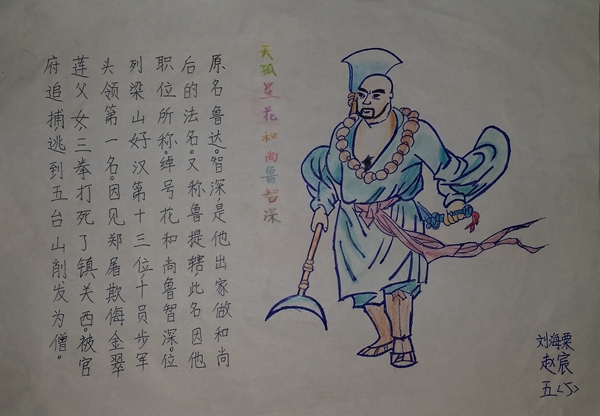 天孤星花和尚鲁智深
原名鲁达,智深,是他出家做和尚
后的法名。又称鲁提辖此名因他
职位所称。绰号花和尚鲁智深。位
列梁山好汉第十三位,十员步军
头领第一名。因见郑屠欺侮金翠
莲父女,三拳打死了镇关西。被官
府追捕逃到五台山削发为僧。
刘海粟
赵宸
五<5>